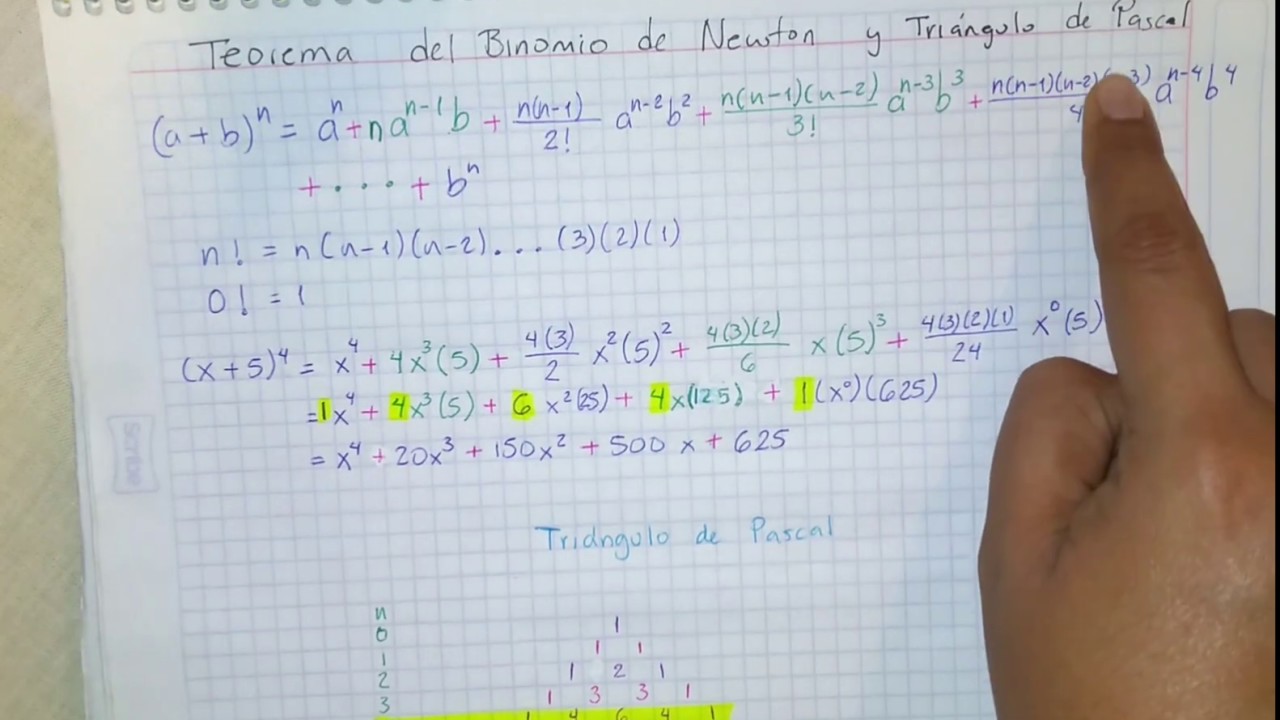 Teorema del Binomio de Newton y Triángulo de Pascal
(a+b)ⁿ = aⁿ + naⁿ⁻¹b + n(n-1)/2! aⁿ⁻²b² + n(n-1)(n-2)/3! aⁿ⁻³b³ + n(n-1)(n-2)( 3)/4 aⁿ⁻⁴b⁴
+ . . . . + bⁿ
n! = n(n-1)(n-2)...(3)(2)(1)
0! = 1
(x+5)⁴ = x⁴ + 4x³(5) + 4(3)/2 x²(5)² + 4(3)(2)/6 x(5)³ + 4(3)(2)(1)/24 x⁰(5)
=1x⁴ + 4x³(5) + 6 x²(25) + 4x(125) + 1(x⁰)(625)
= x⁴ + 20x³ + 150x² + 500x + 625
Scribe
Triángulo de Pascal
n
0 1
1 1 1
2 1 2 1
3 1 3 3 1
1 4 6 4 1